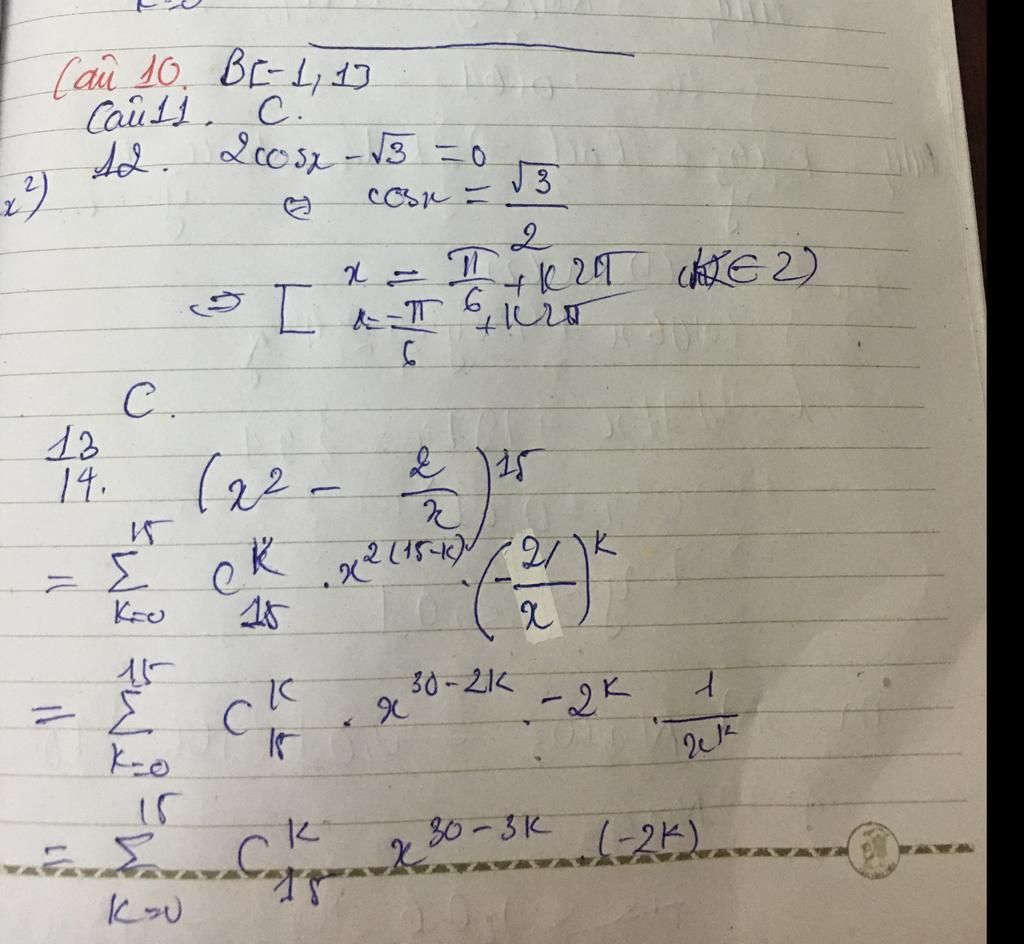 Câu 10. B[-1,1]
Câu 11. C.
12. 2cosx - √3 = 0
x²)
⇔ cosx = √3/2
⇒ [ x = π/6 + K2π (k∈Z)
x = -π/6 + K2π
C.
13
14. (x² - 2/x)^15
= Σ_{K=0}^{15} C_{15}^{K} . x^{2(15-K)} . (-2/x)^K
= Σ_{K=0}^{15} C_{15}^{K} . x^{30-2K} . -2^K . 1/x^K
= Σ_{K=0}^{15} C_{15}^{K} x^{30-3K} . (-2K)